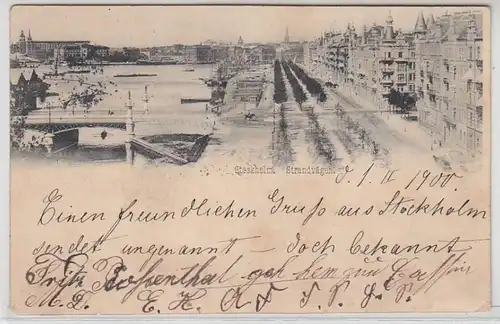 Stockholm Strandvägen.
d. 1. II 1900.
Einen freundlichen Gruss aus Stockholm
sendet ungenannt – doch bekannt
Fritz Rosenthal
M. D. E. H. A F S. P. J. P.